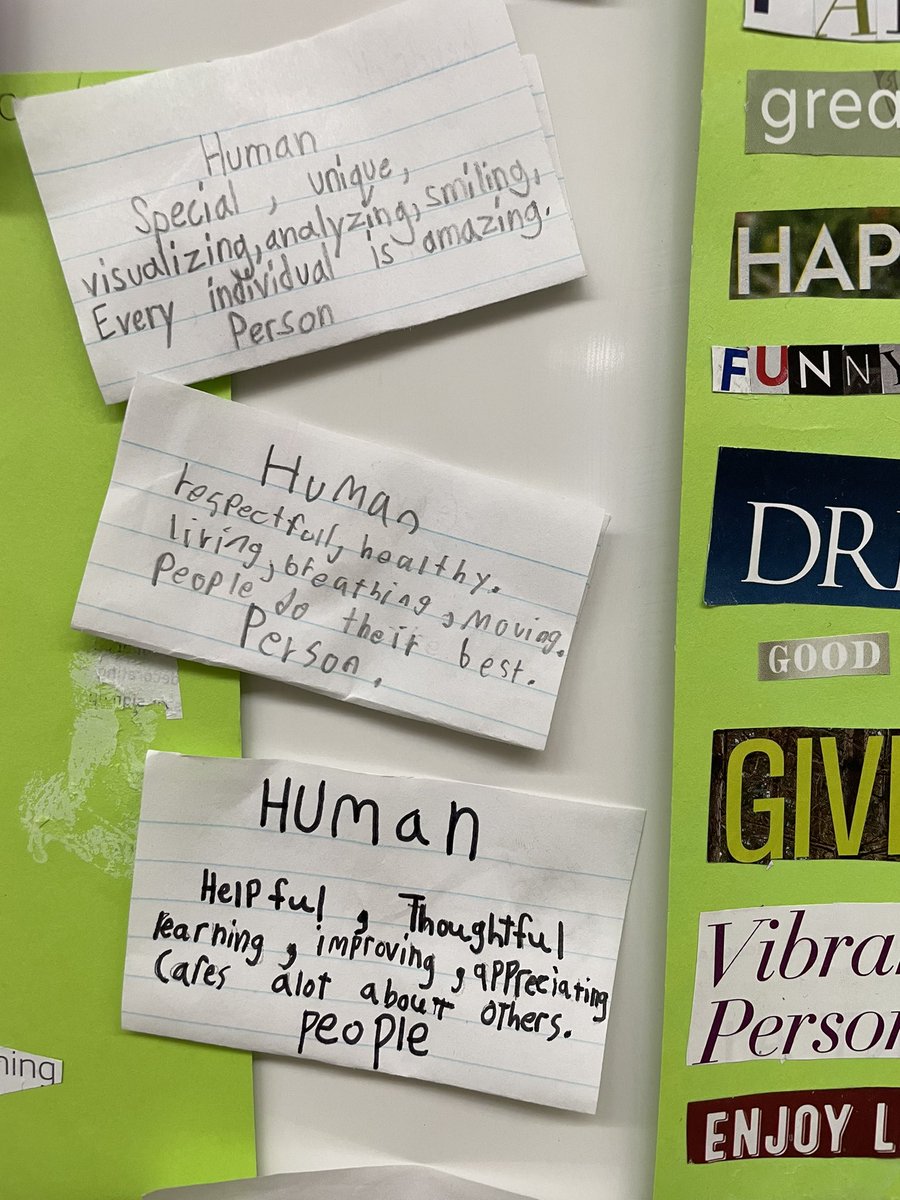 Human
Special, unique,
visualizing, analyzing, smiling,
Every individual is amazing.
Person
Human
respectfull, healthy.
living, breathing, moving.
People do their best.
Person.
HUman
Helpful, Thoughtful
learning, improving, appreciating
Cares alot about others.
people
grea
HAP
FUNNY
DR
GOOD
GIV
Vibra
Person
ENJOY L